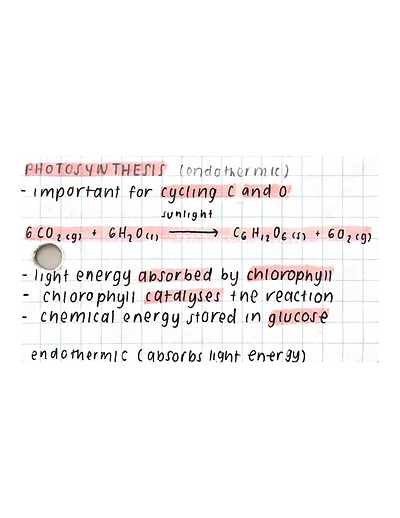 PHOTOSYNTHESIS (endothermic)
- important for cycling C and O
sunlight
6CO₂(g) + 6H₂O(l) ⟶ C₆H₁₂O₆(s) + 6O₂(g)
- light energy absorbed by chlorophyll
- chlorophyll catalyses the reaction
- chemical energy stored in glucose
endothermic (absorbs light energy)